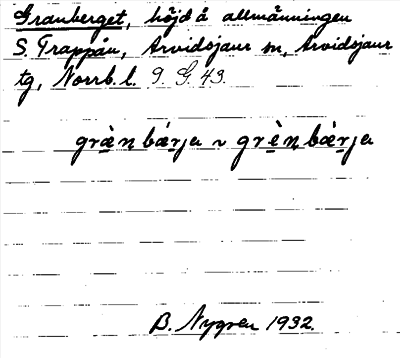 Granberget, höjd å allmänningen
S. Trappån, Arvidsjaur sn, Arvidsjaur
tg, Norrb. l. 9. G. 43.
grànbǽrjɑ ~ grènbæ̀rjɑ
B. Nygren 1932.